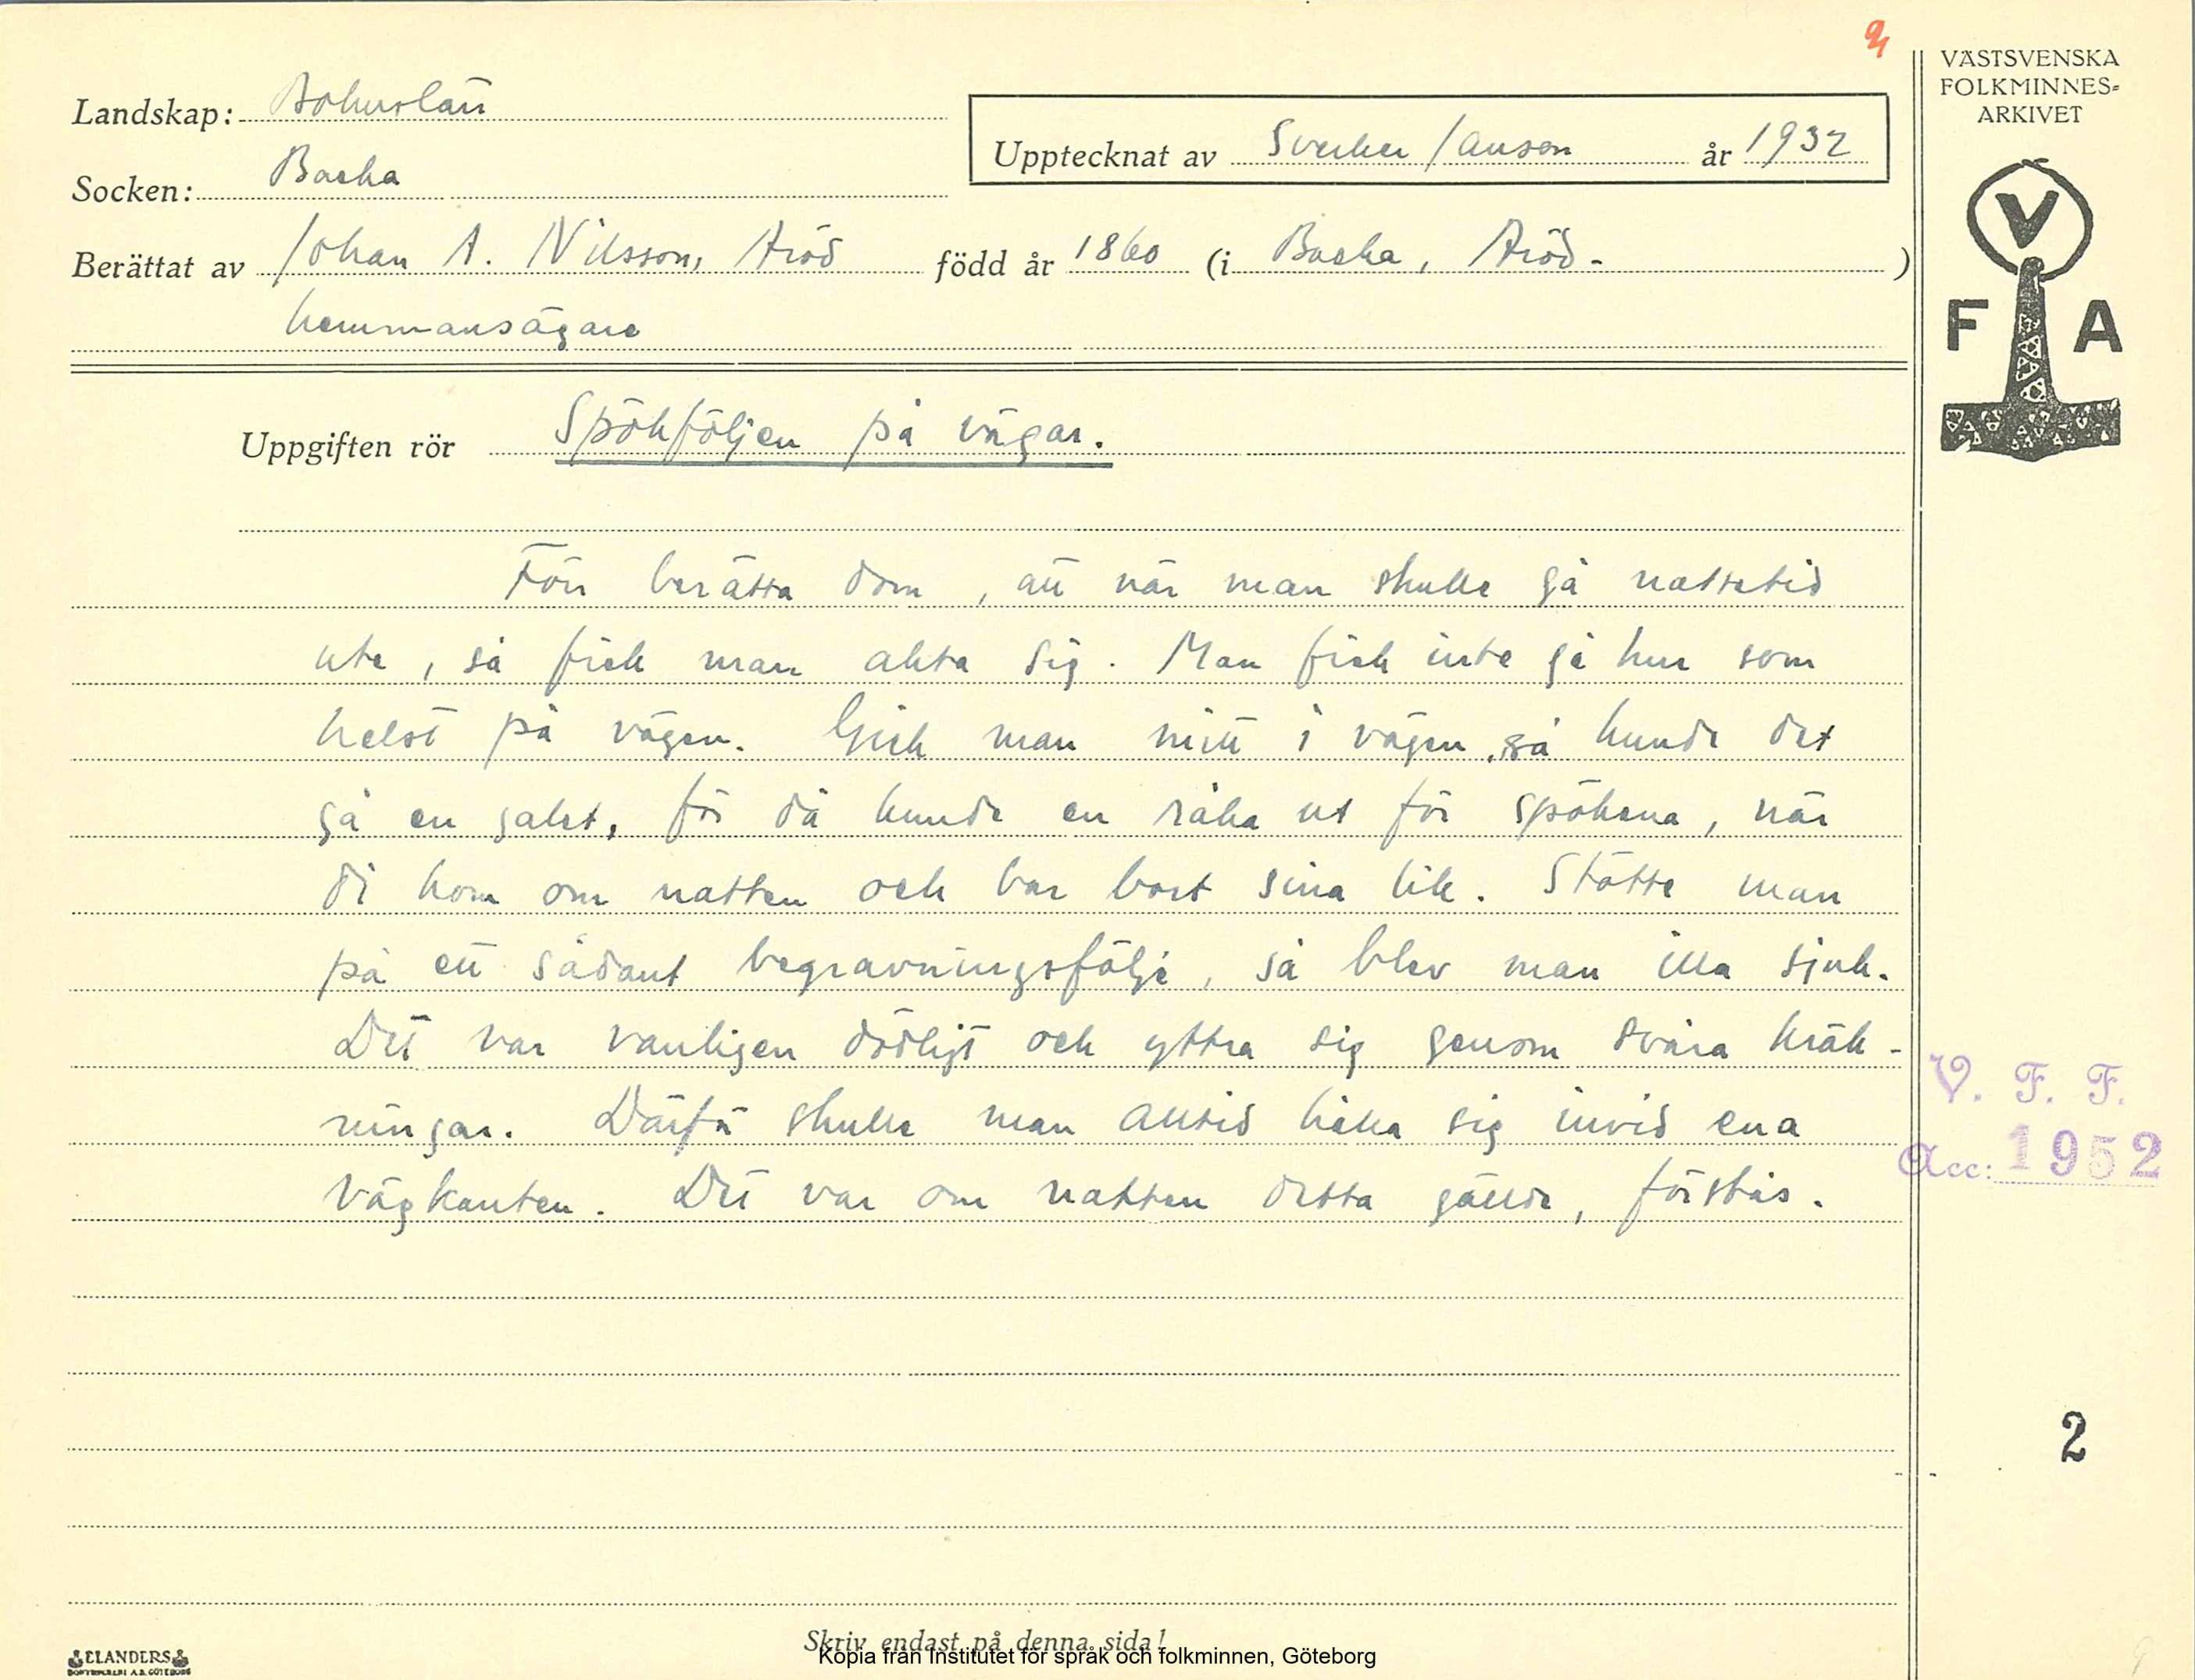 Landskap: Bohuslän
Socken: Backa
Upptecknat av Sverker Janson år 1932
Berättat av Johan A. Nilsson, Aröd född år 1860 (i Backa, Aröd. )
hemmansägare
Uppgiften rör Spökföljen på vägar.
Förr berätta dom, att när man skulle gå nattetid
ute, så fick man akta sig. Man fick inte gå hur som
helst på vägen. Gick man mitt i vägen, så kunde det
gå en galet, för då kunde en råka ut för spökena, när
di kom om natten och bar bort sina lik. Stötte man
på ett sådant begravningsfölje, så blev man illa sjuk.
Det var vanligen dödligt och yttra sig genom svåra kräk-
ningar. Därför skulle man alltid hålla sig invid ena
vägkanten. Det var om natten detta gällde, förstås.
Skriv endast på denna sida!
Kopia från Institutet för språk och folkminnen, Göteborg
ELANDERS
BOKTRYCKERI A.B. GÖTEBORG
VÄSTSVENSKA
FOLKMINNES-
ARKIVET
V
F A
V. F. F.
Acc: 1952
2